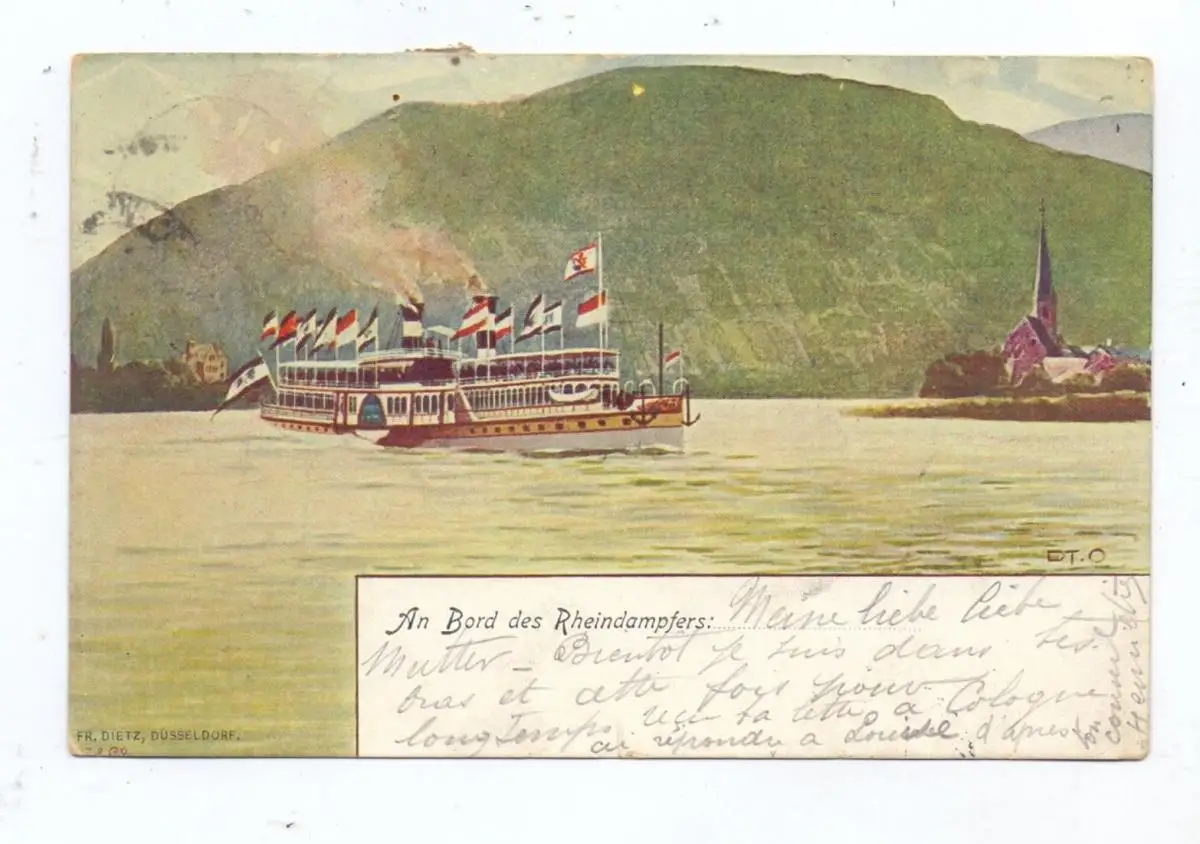 DT.O
An Bord des Rheindampfers: Meine liebe liebe
Mutter _ Bientot je suis dans tes
bras et cette fois pour
longtemps reçu ta lettre a Cologne
ai répondu a d'apres
ton
FR. DIETZ, DÜSSELDORF.